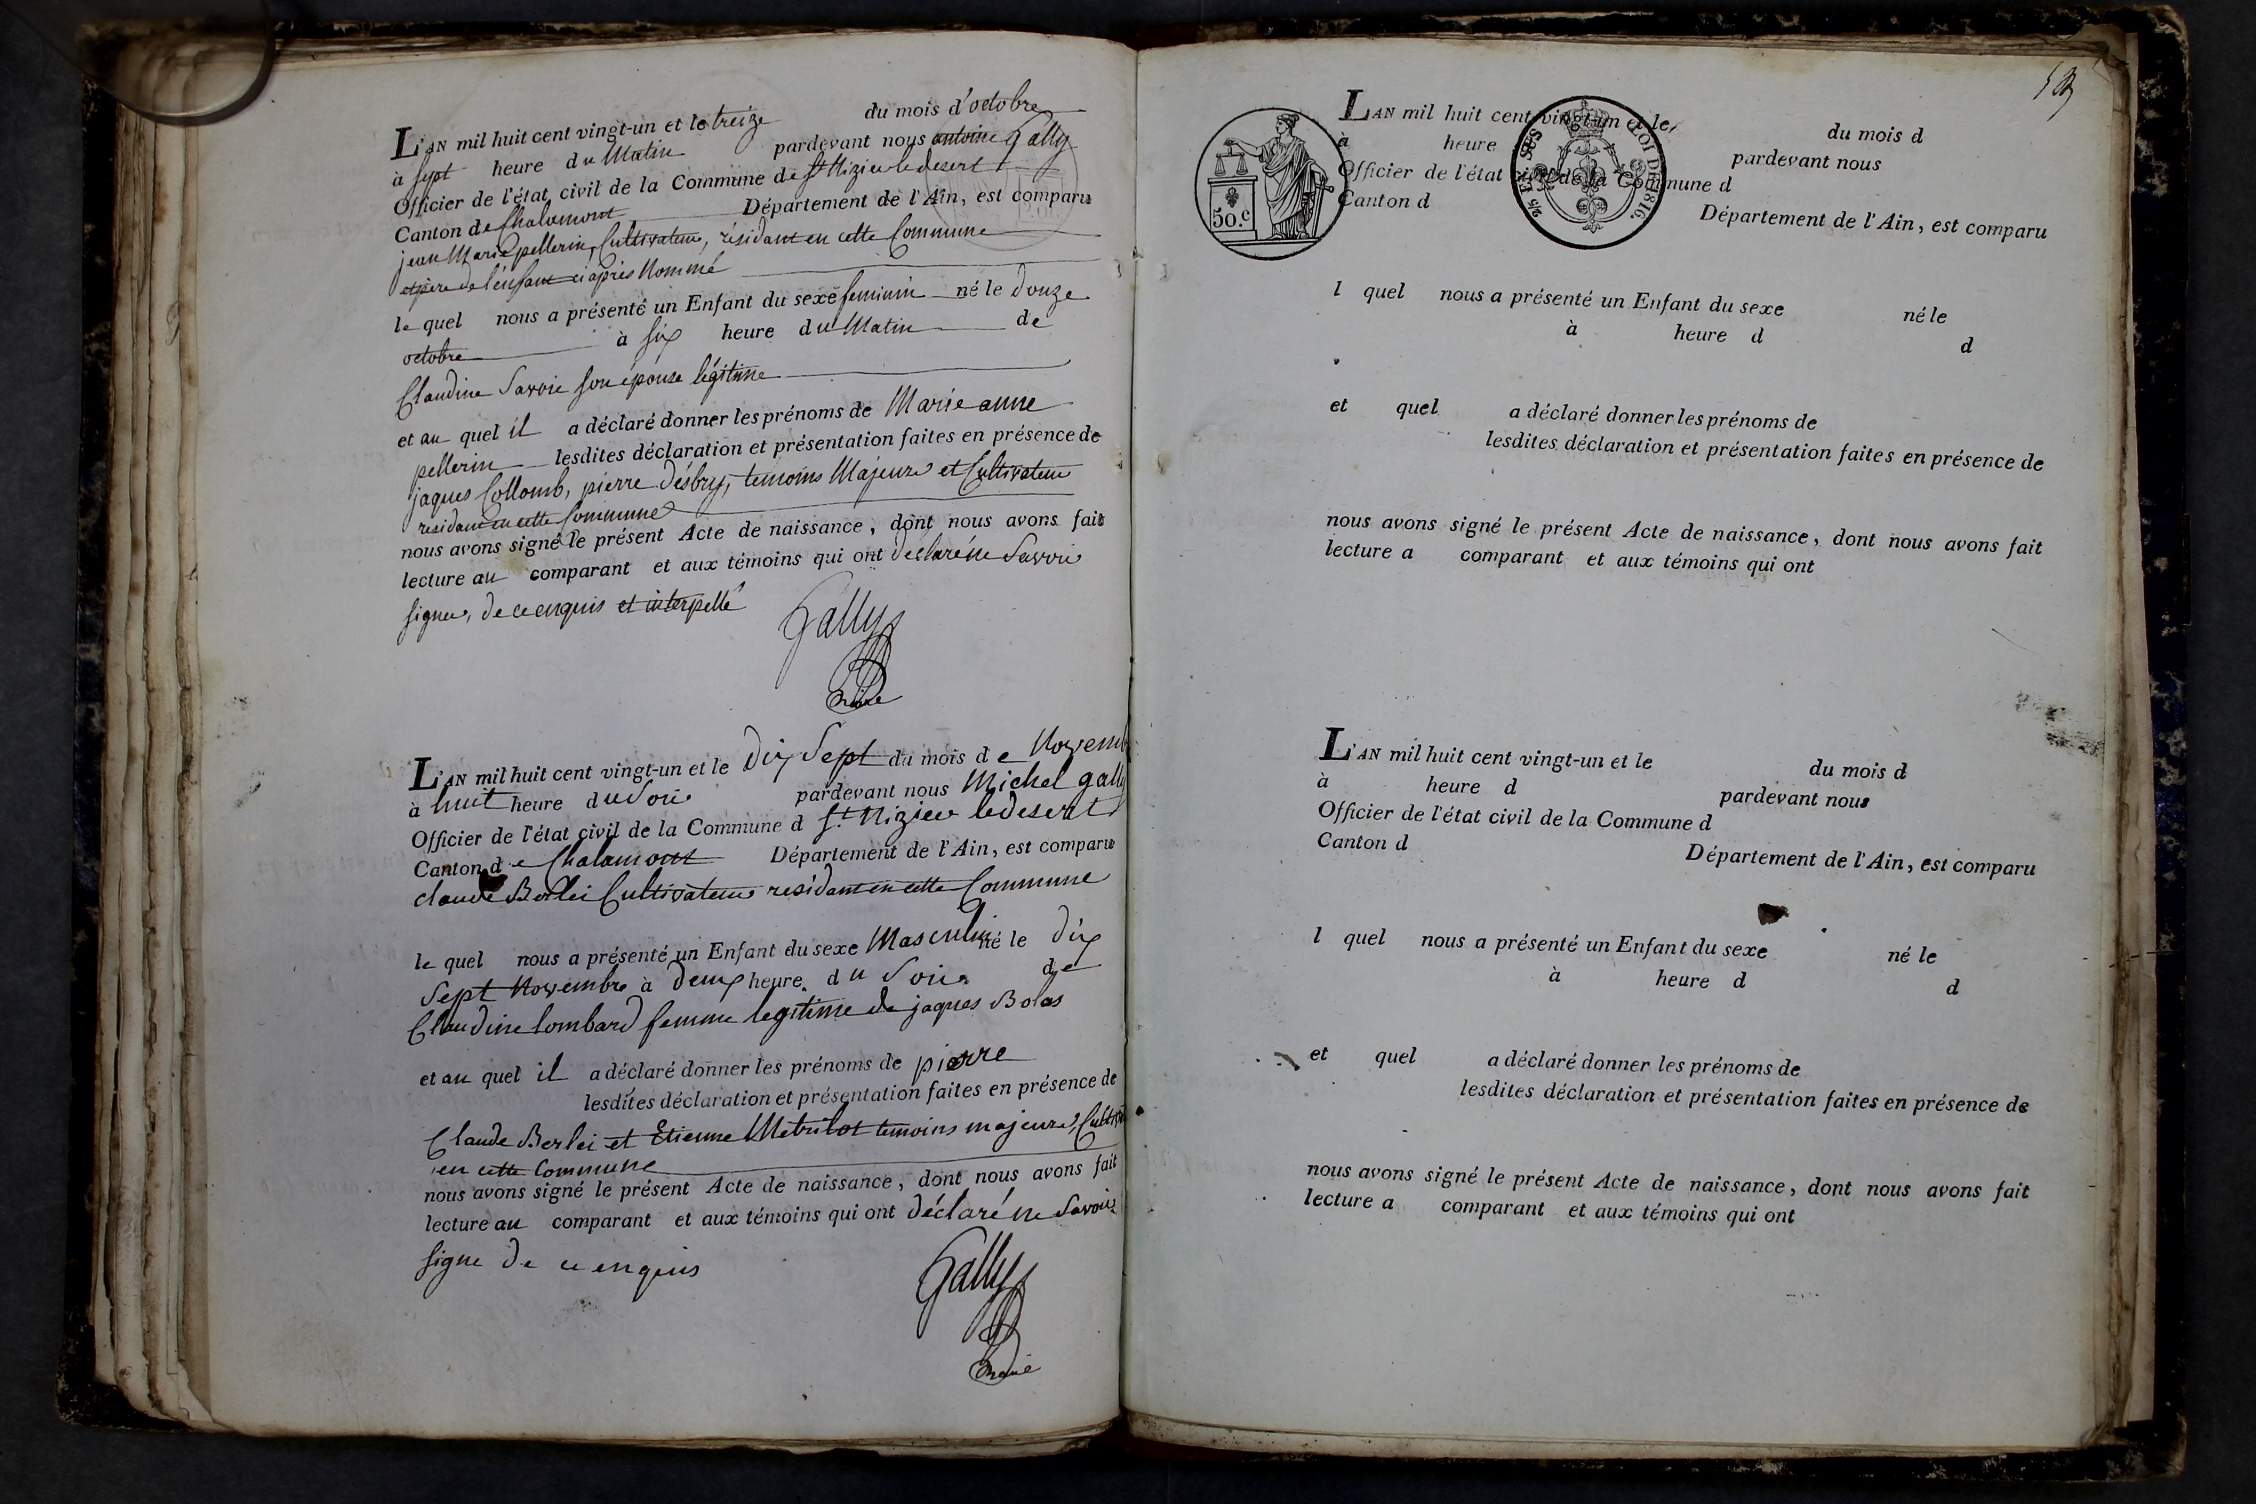 L'AN mil huit cent vingt-un et le treize du mois d'octobre
à sept heure du Matin pardevant nous antoine Gally
Officier de l'état civil de la Commune de St Nizier le desert
Canton de Chalamont Département de l'Ain, est comparu
jean Marie pellerin, Cultivateur, résidant en cette Commune
et pere de l'enfant ci après Nommé
le quel nous a présenté un Enfant du sexe feminin né le douze
octobre à six heure du Matin de
Claudine Savoie son épouse légitime
et au quel il a déclaré donner les prénoms de Marie anne
pellerin lesdites déclaration et présentation faites en présence de
jaques Collomb, pierre Désbry, temoins Majeurs et Cultivateur
residant en cette Commune
nous avons signé le présent Acte de naissance, dont nous avons fait
lecture au comparant et aux témoins qui ont declaré ne Savoir
signer, de ce enquis et interpellé
Gally
L'AN mil huit cent vingt-un et le dix Sept du mois de Novemb
à huit heure du Soir pardevant nous Michel gally
Officier de l'état civil de la Commune d St. Nizier le desert
Canton de Chalamont Département de l'Ain, est comparu
claude Berlei Cultivateur residant en cette Commune
le quel nous a présenté un Enfant du sexe Masculin né le dix
Sept Novembre à deux heure du Soir de
Claudine lombard femme legitime de jaques Bolas
et au quel il a déclaré donner les prénoms de pierre
lesdites déclaration et présentation faites en présence de
Claude Berlei et Etienne temoins majeurs,
en cette Commune
nous avons signé le présent Acte de naissance, dont nous avons fait
lecture au comparant et aux témoins qui ont déclaré ne Savoir
signe de ce enquis
Gally
50.c
LOI DE 1816.
L'AN mil huit cent vingt-un et le du mois d
à heure pardevant nous
Officier de l'état civil de la Commune d
Canton d Département de l'Ain, est comparu
l quel nous a présenté un Enfant du sexe né le
à heure d d
et quel a déclaré donner les prénoms de
lesdites déclaration et présentation faites en présence de
nous avons signé le présent Acte de naissance, dont nous avons fait
lecture a comparant et aux témoins qui ont
L'AN mil huit cent vingt-un et le du mois d
à heure d pardevant nous
Officier de l'état civil de la Commune d
Canton d Département de l'Ain, est comparu
l quel nous a présenté un Enfant du sexe né le
à heure d d
et quel a déclaré donner les prénoms de
lesdites déclaration et présentation faites en présence de
nous avons signé le présent Acte de naissance, dont nous avons fait
lecture a comparant et aux témoins qui ont